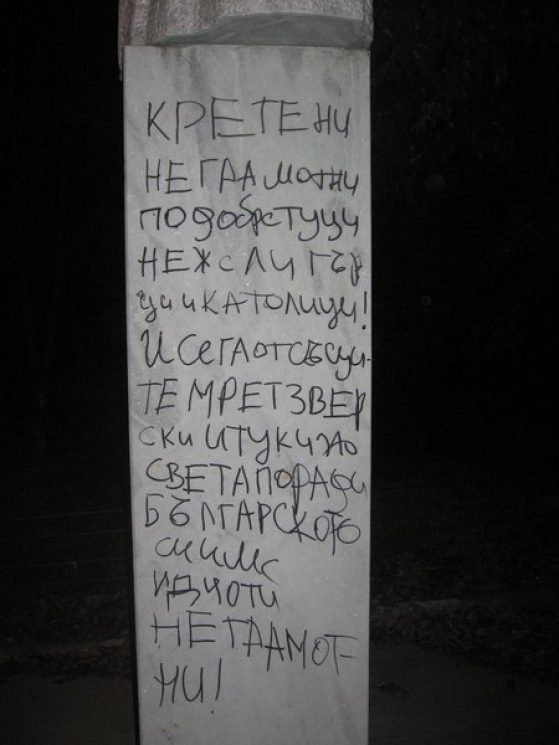 КРЕТЕНИ
НЕГРАМОТНИ
ПОДОБРЕТУЦИ
НЕЖСЛИГЪР
ЦИИКАТОЛИЦИ!
ИСЕГАОТСЪСИ-
ТЕМРЕТЗВЕР
СКИИТУКИПО
СВЕТАПОРАДИ
БЪЛГАРСКОТО
ИДИОТИ
НЕГРАМОТ-
НИ!